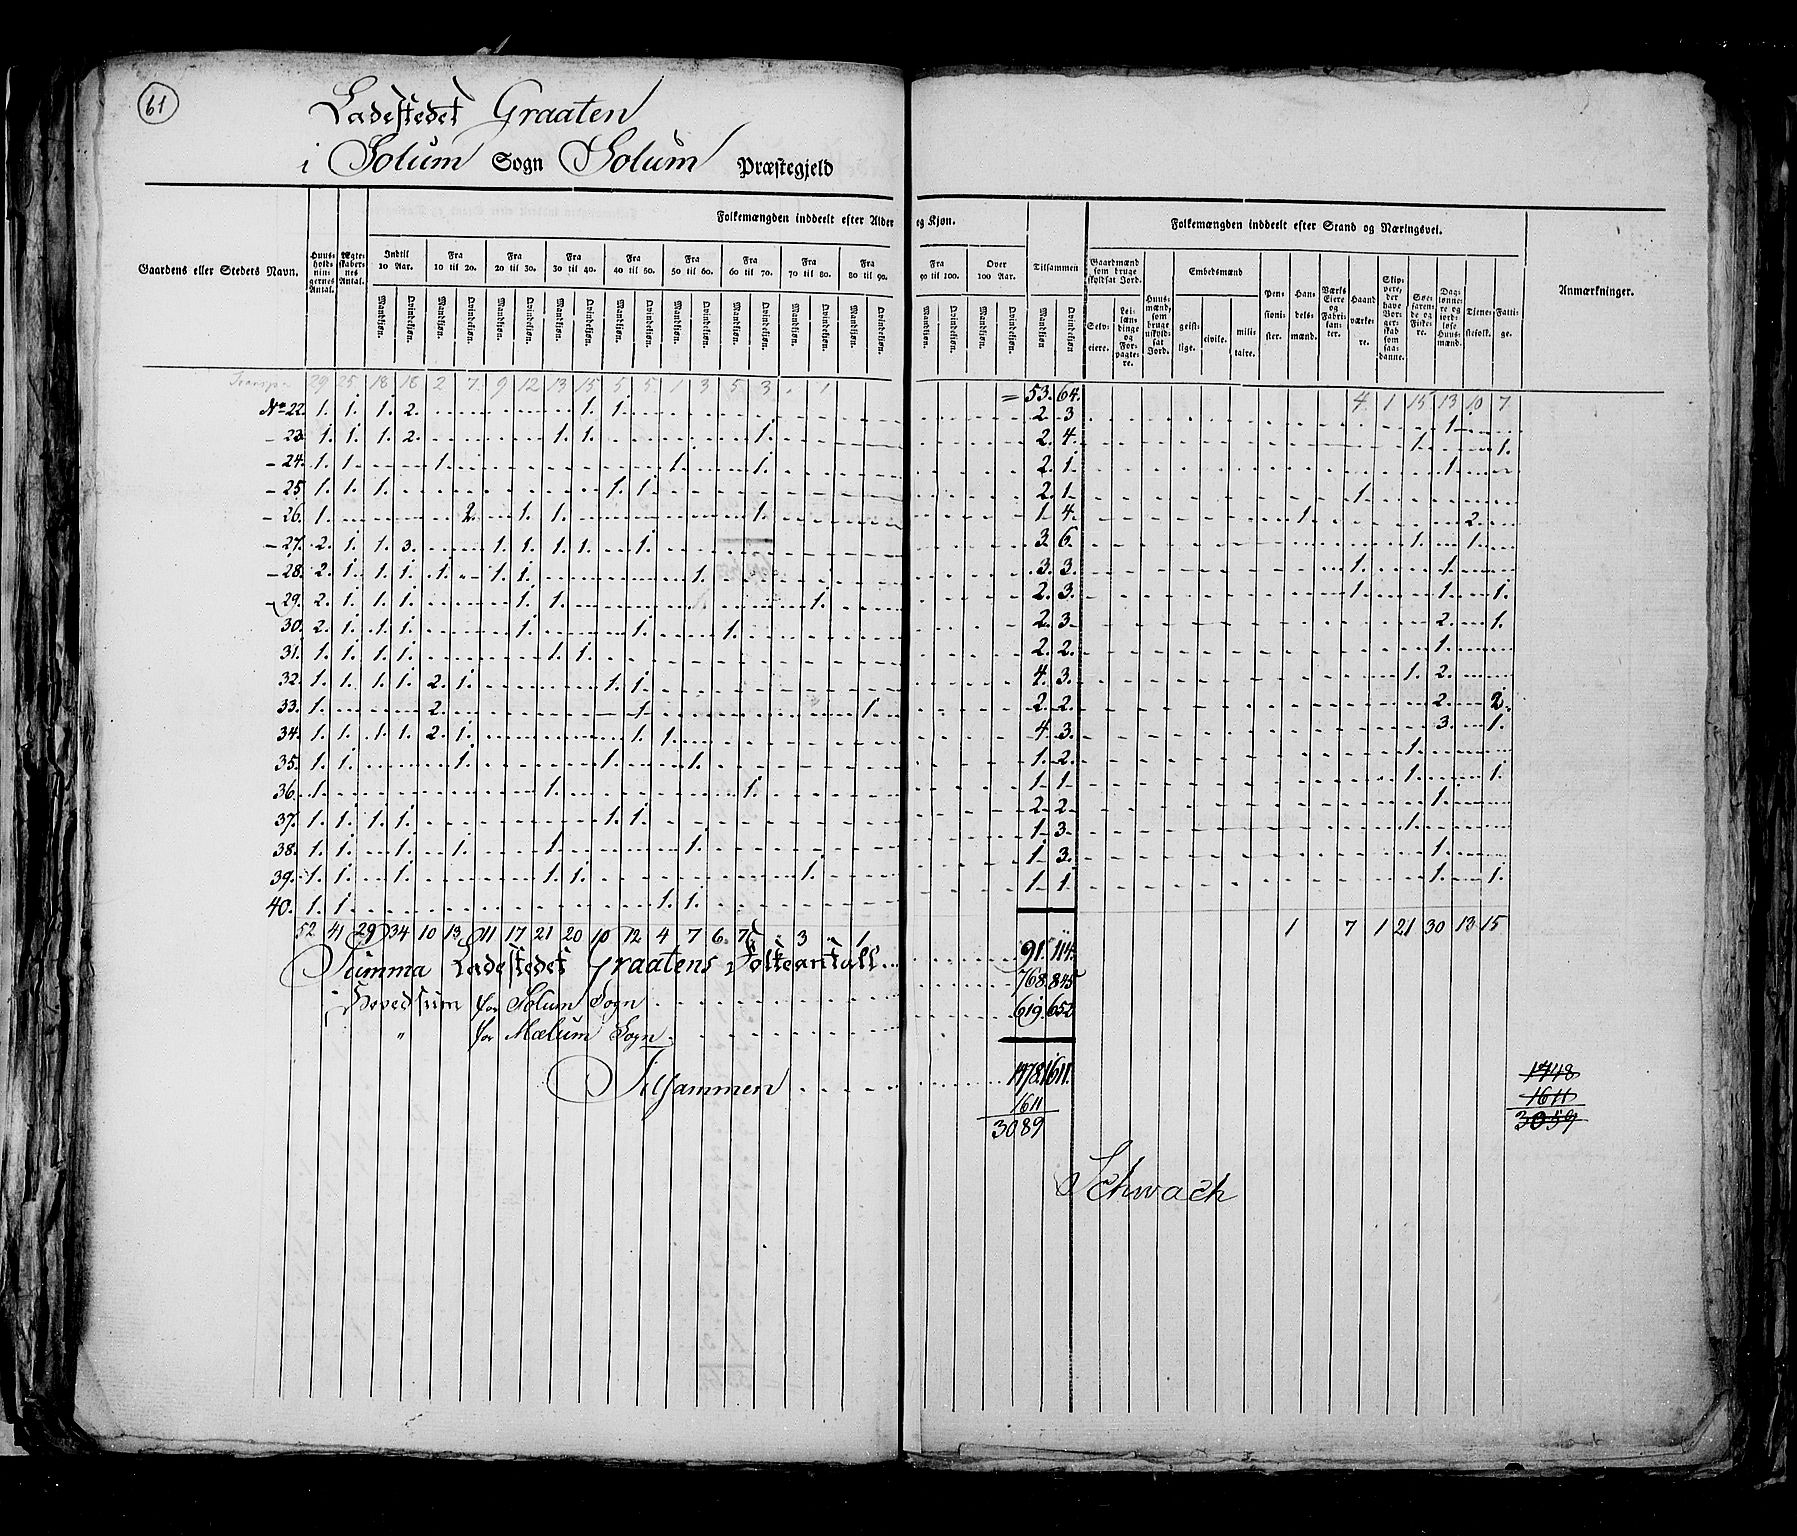 61
Ladestedet Graaten
i Solum Sogn Solum Præstegjeld
Folkemængden inddeelt efter Alder og Kjøn.
Folkemængden inddeelt efter Stand og Næringsvei.
Gaardens eller Stedets Navn.
Huusholdningernes Antal.
Ægteskabernes Antal.
Indtil 10 Aar.
Fra 10 til 20.
Fra 20 til 30.
Fra 30 til 40.
Fra 40 til 50.
Fra 50 til 60.
Fra 60 til 70.
Fra 70 til 80.
Fra 80 til 90.
Fra 90 til 100.
Over 100 Aar.
Tilsammen
Mandkjøn. Qvindekjøn.
Gaardmænd som bruge skyldsat Jord.
Selveiere.
Leilændinge og Forpagtere.
Huusmænd, som bruge uskyldsat Jord.
Embedsmænd
geistlige.
civile.
militaire.
Pensionister.
Handelsmænd.
Værks Eiere og Fabrikanter.
Haandværkere.
Skippere, der have Borgerskab som saadanne.
Søefarende og Fiskere.
Daglønnere og jordløse Huusmænd.
Tjenestefolk.
Fattige.
Anmærkninger.
Transport 29 25 18 18 2 7 9 12 13 15 5 5 1 3 5 3 1 = 53. 64. 4 1 15 13 10 7
No 22. 1. 1. 1. 2. 1. 1. 2. 3 1
- 23. 1. 1. 1. 2. 1. 1. 1. 2. 4. 1. 1.
- 24. 1. 1. 1. 1. 1. 2. 1. 1.
- 25. 1. 1. 1. 1. 1. 2. 1. 1.
- 26. 1. 2. 1. 1. 1. 1. 4. 1. 2.
- 27. 2. 1. 1. 3. 1. 1. 1. 1. 1. 3. 6. 1. 1.
- 28. 2. 1. 1. 1. 1. 1. 1. 1. 3. 3. 1. 1.
- 29. 2. 1. 1. 1. 1. 1. 1. 2. 3. 1. 1. 1.
30. 2. 1. 1. 1. 1. 1. 1. 2. 3. 2. 1.
31. 1. 1. 1. 1. 1. 1. 2. 2. 1.
32. 1. 1. 1. 1. 2. 1. 1. 1. 4. 3. 1. 2.
33. 1. 2. 1. 1. 2. 2. 2. 2.
34. 1. 1. 1. 1. 2. 1. 1. 1. 4. 3. 3. 1.
35. 1. 1. 1. 1. 1. 1. 2. 1.
36. 1. 1. 1. 1. 1. 1. 1.
37. 1. 1. 1. 1. 1. 1. 2. 2. 1.
38. 1. 1. 1. 1. 1. 1. 1. 3. 1.
39. 1. 1. 1. 1. 1. 1. 1. 3. 1.
40. 1. 1. 1. 1. 1. 1. 1. 1.
52 41 29 34 10 13 11 17 21 20 10 12 4 7 6 7 " 3 " 1 1 7 1 21 30 13 15
Summa Ladestedet Graatens Folkeantall 91. 114.
Hovedsum for Solum Sogn 768. 845
" for Mælum Sogn 619. 652
Tilsammen 1478. 1611.
1611
3089
1448
1611
3059
Schwach